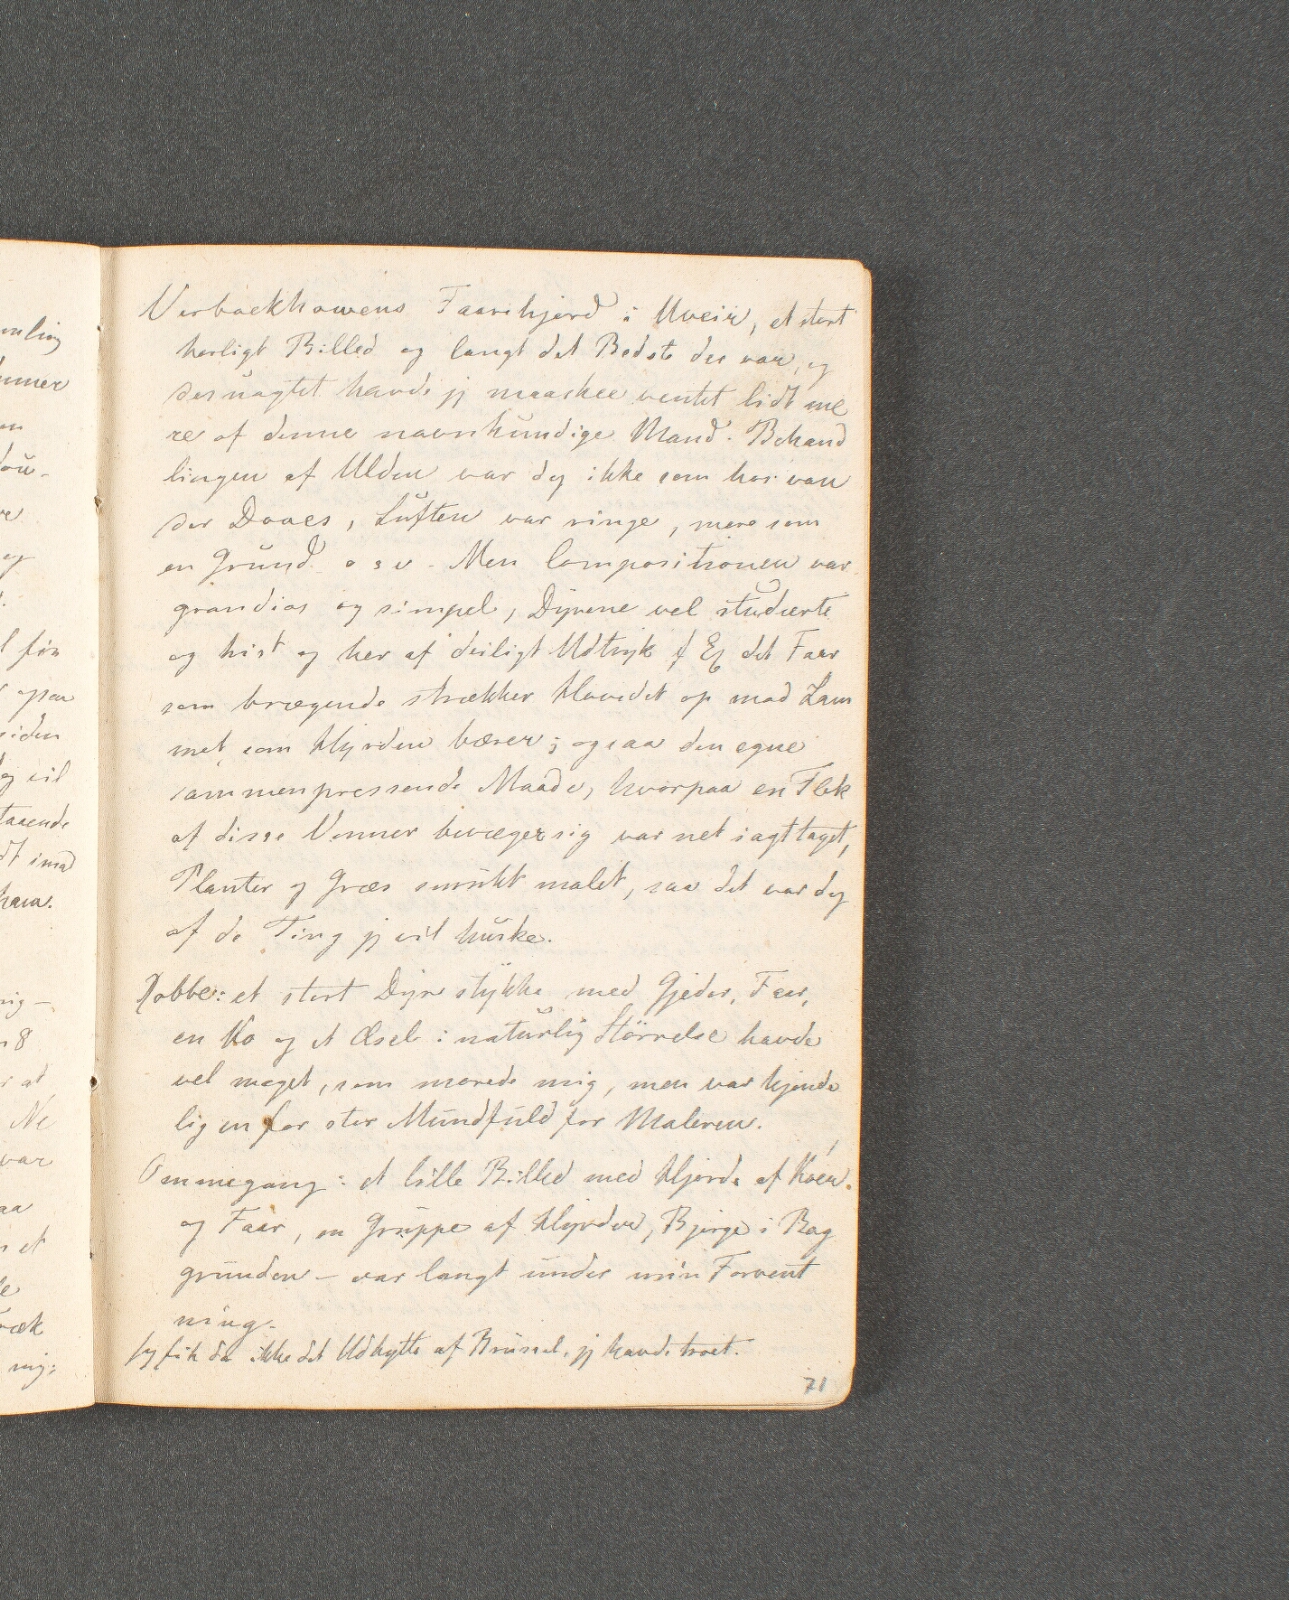 Verboekhowens Faarehjord i Uveir, et stort
herligt Billed og langt det Bedste der var, og
desuagtet havde jg maaskee ventet lidt me
re af denne navnkundige Mand. Behand
lingen af Ulden var dog ikke som hos van
der Daaes, Luften var ringe, mere som
en Grund o s v. Men Compositionen var
grandios og simpel, Dyrene vel studerte
og hist og her af deiligt Udtryk f Ex det Faar
som brægende strækker Hovedet op mod Lam
met som Hyrden bærer; ogsaa den egne
sammenpressende Maade, hvorpaa en Flok
af disse Venner bevæger sig var net iagttaget,
Planter og Græs smukt malet, saa det var dog
af de Ting jg vil huske.
Robbe: et stort Dyrestykke med Gjeder, Faar,
en Ko og et Æsel i naturlig Størrelse havde
vel meget, som morede mig, men var kjende
lig en for stor Mundfuld for Maleren.
Ommegang: et lille Billed med Hjorde af Køer
og Faar, en Gruppe af Hyrder, Bjerge i Bag
grunden – var langt under min Forvent
ning.
Jeg fik da ikke det Udbytte af Brüssel, jg havde troet.
71